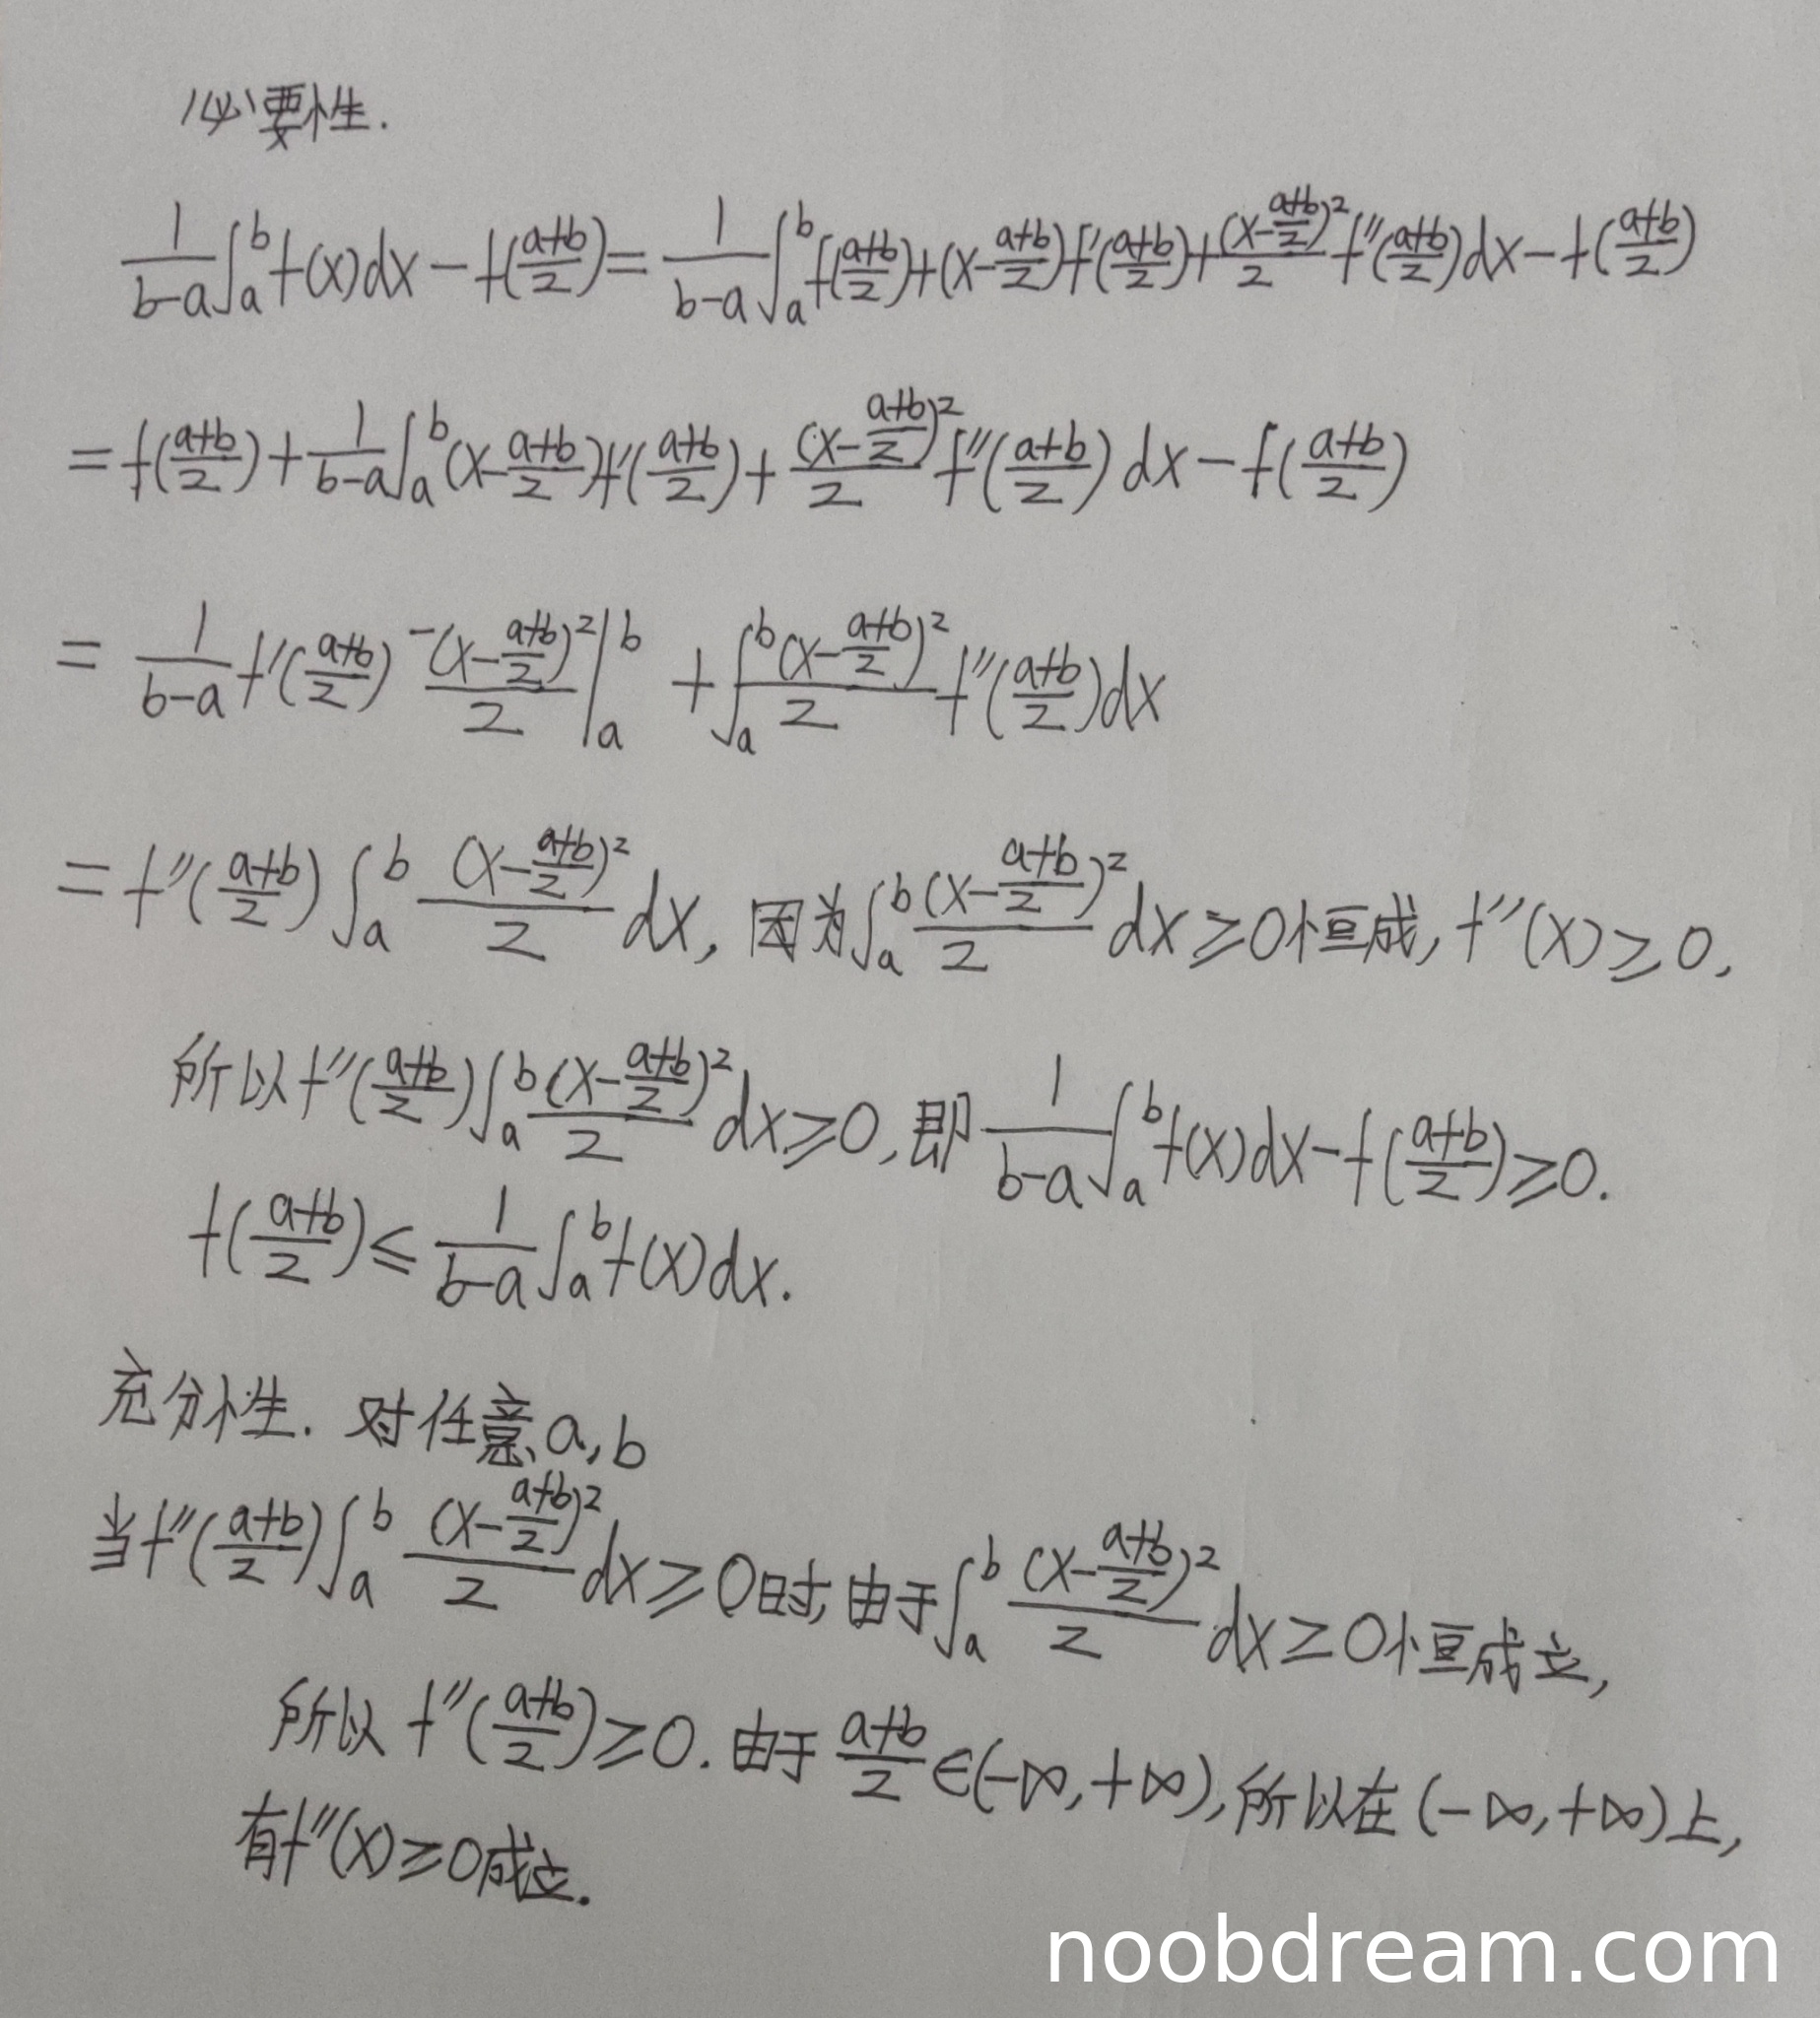 必要性.
\frac{1}{b-a}\int_a^b f(x)dx-f(\frac{a+b}{2})=\frac{1}{b-a}\int_a^b f(\frac{a+b}{2})+(x-\frac{a+b}{2})f'(\frac{a+b}{2})+\frac{(x-\frac{a+b}{2})^2}{2}f''(\frac{a+b}{2})dx-f(\frac{a+b}{2})
=f(\frac{a+b}{2})+\frac{1}{b-a}\int_a^b(x-\frac{a+b}{2})f'(\frac{a+b}{2})+\frac{(x-\frac{a+b}{2})^2}{2}f''(\frac{a+b}{2})dx-f(\frac{a+b}{2})
=\frac{1}{b-a}f'(\frac{a+b}{2})\frac{-(x-\frac{a+b}{2})^2}{2}|_a^b+\int_a^b\frac{(x-\frac{a+b}{2})^2}{2}f''(\frac{a+b}{2})dx
=f''(\frac{a+b}{2})\int_a^b\frac{(x-\frac{a+b}{2})^2}{2}dx, 因为\int_a^b\frac{(x-\frac{a+b}{2})^2}{2}dx≥0恒成, f''(x)≥0,
所以f''(\frac{a+b}{2})\int_a^b\frac{(x-\frac{a+b}{2})^2}{2}dx≥0, 即\frac{1}{b-a}\int_a^b f(x)dx-f(\frac{a+b}{2})≥0.
f(\frac{a+b}{2})≤\frac{1}{b-a}\int_a^b f(x)dx.
充分性. 对任意a,b
当f''(\frac{a+b}{2})\int_a^b\frac{(x-\frac{a+b}{2})^2}{2}dx≥0时, 由于\int_a^b\frac{(x-\frac{a+b}{2})^2}{2}dx≥0恒成立,
所以 f''(\frac{a+b}{2})≥0. 由于\frac{a+b}{2}∈(-∞,+∞), 所以在(-∞,+∞)上,
有f''(x)≥0成立.
noobdream.com